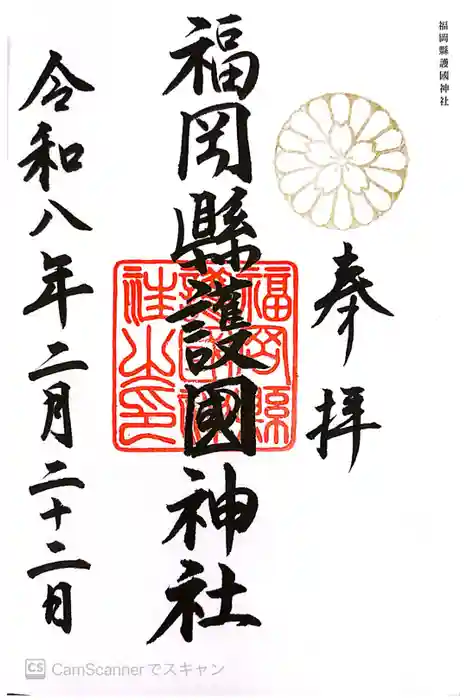 福岡縣護國神社
奉拝
福岡縣護國神社
令和八年二月二十二日
CS CamScannerでスキャン